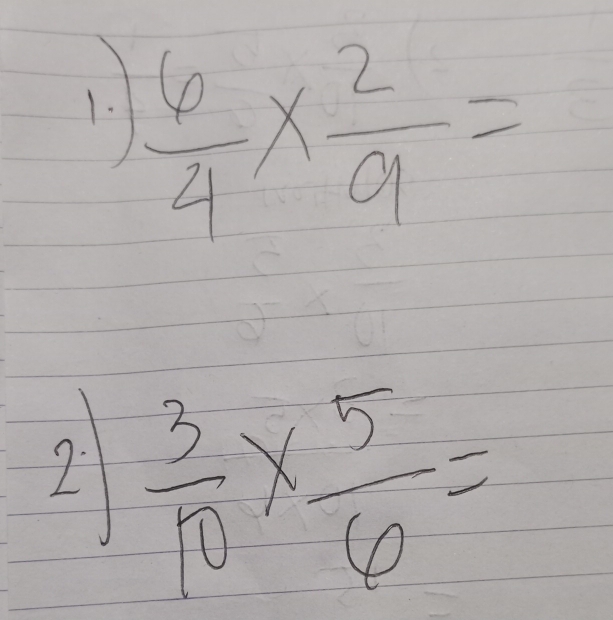 1.) 6/4 × 2/9 =
2.) 3/10 × 5/6 =